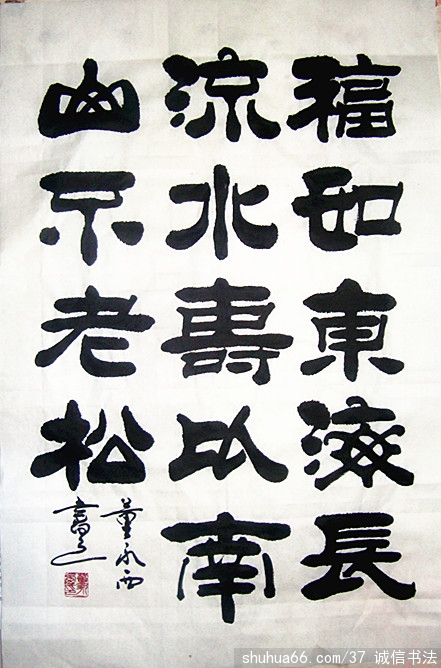 福如東海長
流水壽比南
山不老松
董永西
shuhua66.com/37 诚信书法